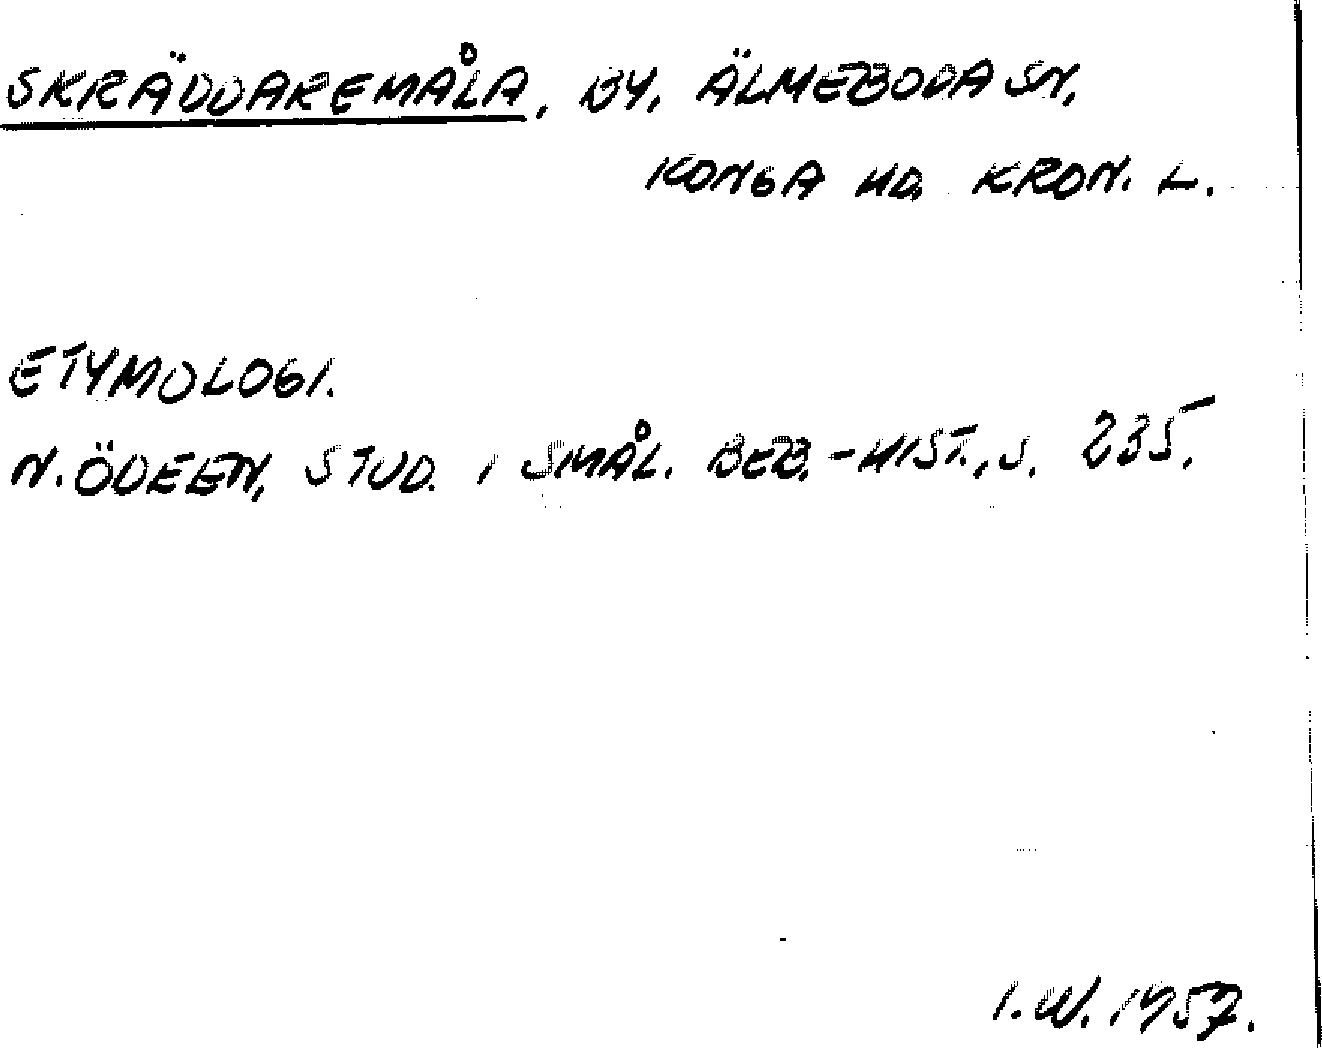 SKRÄDDAREMÅLA, BY, ÄLMEBODA SN,
KONGA HD, KRON. L.
ETYMOLOGI.
N. ÖDEEN, STUD. I SMÅL. BEB.-HIST., S. 235.
I.W. 1957.